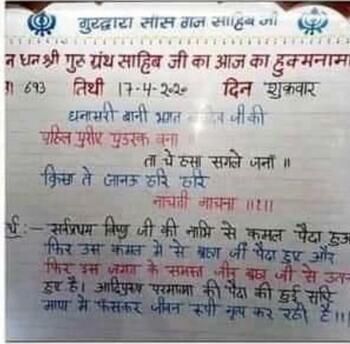 ਗੁਰਦੁਆਰਾ ਸੀਸ ਗੰਜ ਸਾਹਿਬ ਜੀ
न धन श्री गुरु ग्रंथ साहिब जी का आज का हुक्मनामा
693 तिथी 17-4-2020 दिन शुक्रवार
धनासरी बानी भगत जी की
पहिल पुरीए पुंडरक वना
ता चे हंसा सगले जनां ॥
क्रिस्ना ते जानऊ हरि हरि
नाचंती नाचना ॥1॥
र्थ :- सर्वप्रथम विष्णु जी की नाभि से कमल पैदा हुआ
फिर उस कमल में से ब्रह्मा जी पैदा हुए और
फिर इस जगत के समस्त जीव ब्रह्मा जी से उत
हुए है। आदिपुरुष परमात्मा की पैदा की हुई सृष्टि
माया में फंसकर जीवन रूपी नृत्य कर रही है।।